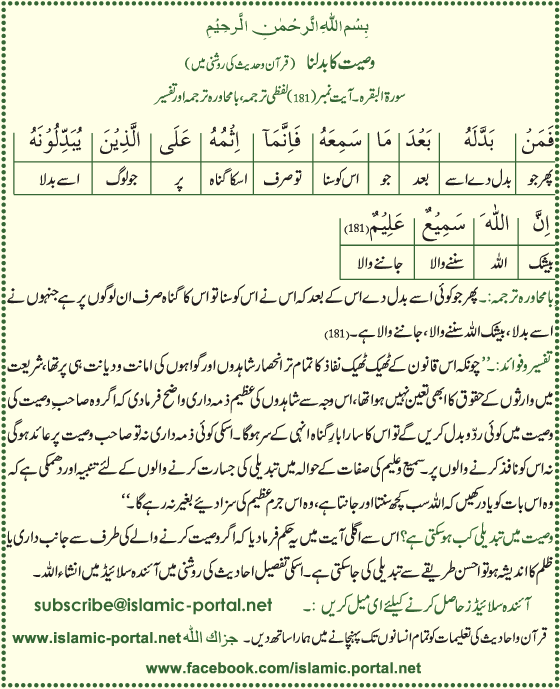 بِسْمِ اللهِ الرَّحْمٰنِ الرَّحِيْمِ
وصیت کا بدلنا (قرآن وحدیث کی روشنی میں)
سورۃ البقرہ۔ آیت نمبر (181) لفظی ترجمہ، بامحاورہ ترجمہ اور تفسیر
فَمَنْۢ بَدَّلَهٗ بَعْدَ مَا سَمِعَهٗ فَاِنَّمَآ اِثْمُهٗ عَلَى الَّذِيْنَ يُبَدِّلُوْنَهٗ
پھر جو بدل دے اسے بعد جو اس کو سنا تو صرف اسکا گناہ پر جو لوگ اسے بدلا
اِنَّ اللّٰهَ سَمِيْعٌ عَلِيْمٌ (181)
بیشک اللہ سننے والا جاننے والا
بامحاورہ ترجمہ:۔ پھر جو کوئی اسے بدل دے اس کے بعد کہ اس نے اس کو سنا تو اس کا گناہ صرف ان لوگوں پر ہے جنہوں نے
اسے بدلا، بیشک اللہ سننے والا، جاننے والا ہے۔ (181)
تفسیر و فوائد:۔ ’’چونکہ اس قانون کے ٹھیک ٹھیک نفاذ کا تمام تر انحصار شاہدوں اور گواہوں کی امانت و دیانت ہی پر تھا، شریعت
میں وارثوں کے حقوق کا ابھی تعین نہیں ہوا تھا، اس وجہ سے شاہدوں کی عظیم ذمہ داری واضح فرما دی کہ اگر وہ صاحب وصیت کی
وصیت میں کوئی ردّ و بدل کریں گے تو اس کا سارا بارِ گناہ انہی کے سر ہو گا۔ اسکی کوئی ذمہ داری نہ تو صاحب وصیت پر عائد ہو گی
نہ اس کو نافذ کرنے والوں پر۔ سمیع و علیم کی صفات کے حوالہ میں تبدیلی کی جسارت کرنے والوں کے لئے تنبیہ اور دھمکی ہے کہ
وہ اس بات کو یاد رکھیں کہ اللہ سب کچھ سنتا اور جانتا ہے، وہ اس جرم عظیم کی سزا دیئے بغیر نہ رہے گا۔‘‘
وصیت میں تبدیلی کب ہوسکتی ہے؟ اس سے اگلی آیت میں یہ حکم فرما دیا کہ اگر وصیت کرنے والے کی طرف سے جانب داری یا
ظلم کا اندیشہ ہو تو احسن طریقے سے تبدیلی کی جاسکتی ہے۔ اسکی تفصیل احادیث کی روشنی میں آئندہ سلائیڈ میں انشاء اللہ۔
آئندہ سلائیڈز حاصل کرنے کیلئے ای میل کریں :۔ subscribe@islamic-portal.net
قرآن و احادیث کی تعلیمات کو تمام انسانوں تک پہنچانے میں ہمارا ساتھ دیں۔ جزاك الله www.islamic-portal.net
www.facebook.com/islamic.portal.net